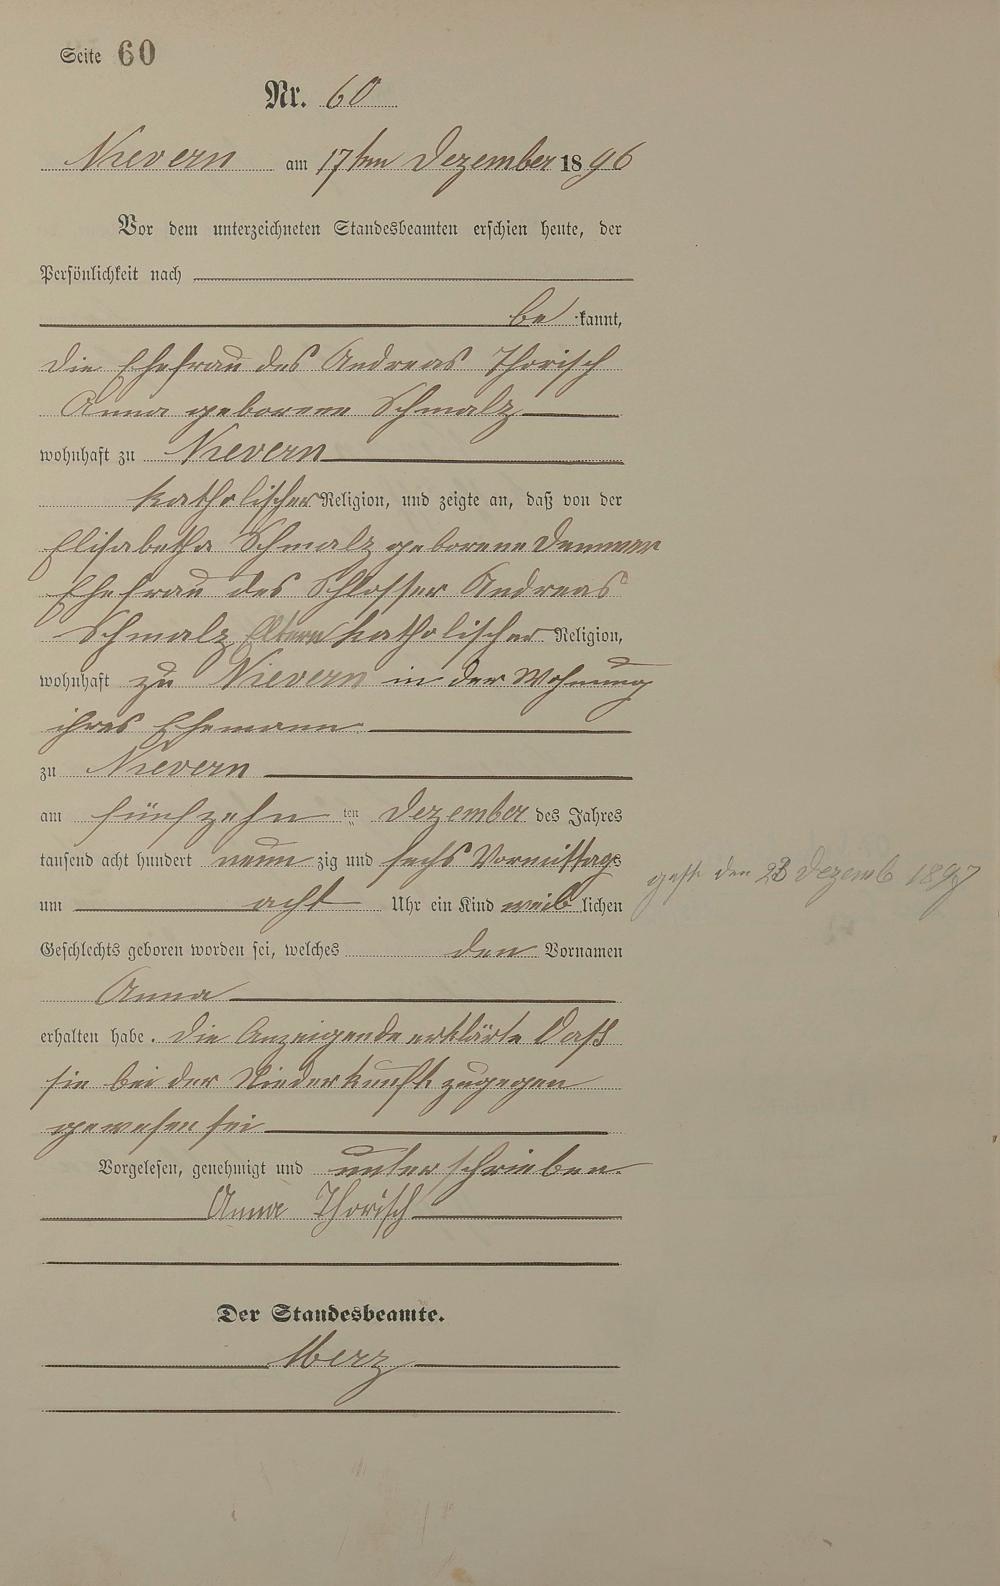 Seite 60
Nr. 60
Nievern am 17ten Dezember 1896
Vor dem unterzeichneten Standesbeamten erschien heute, der
Persönlichkeit nach
be kannt,
die Ehefrau des Andreas Thorisch
Anna geborene Schmalz
wohnhaft zu Nievern
katholischer Religion, und zeigte an, daß von der
Elisabetha Schmalz geborene
Ehefrau des Schlosser Andreas
Schmalz katholischer Religion,
wohnhaft zu Nievern in der Wohnung
ihres Ehemann
zu Nievern
am fünfzehn ten Dezember des Jahres
tausend acht hundert neun zig und sechs Vormittags
um acht Uhr ein Kind weib lichen
Geschlechts geboren worden sei, welches den Vornamen
Anna
erhalten habe. Die Anzeigende erklärte daß
sie bei der Niederkunft zugegen
gewesen sei
Vorgelesen, genehmigt und unterschrieben
Anna Thorisch
Der Standesbeamte.
Merz
gest. den 23 Dezemb 1897